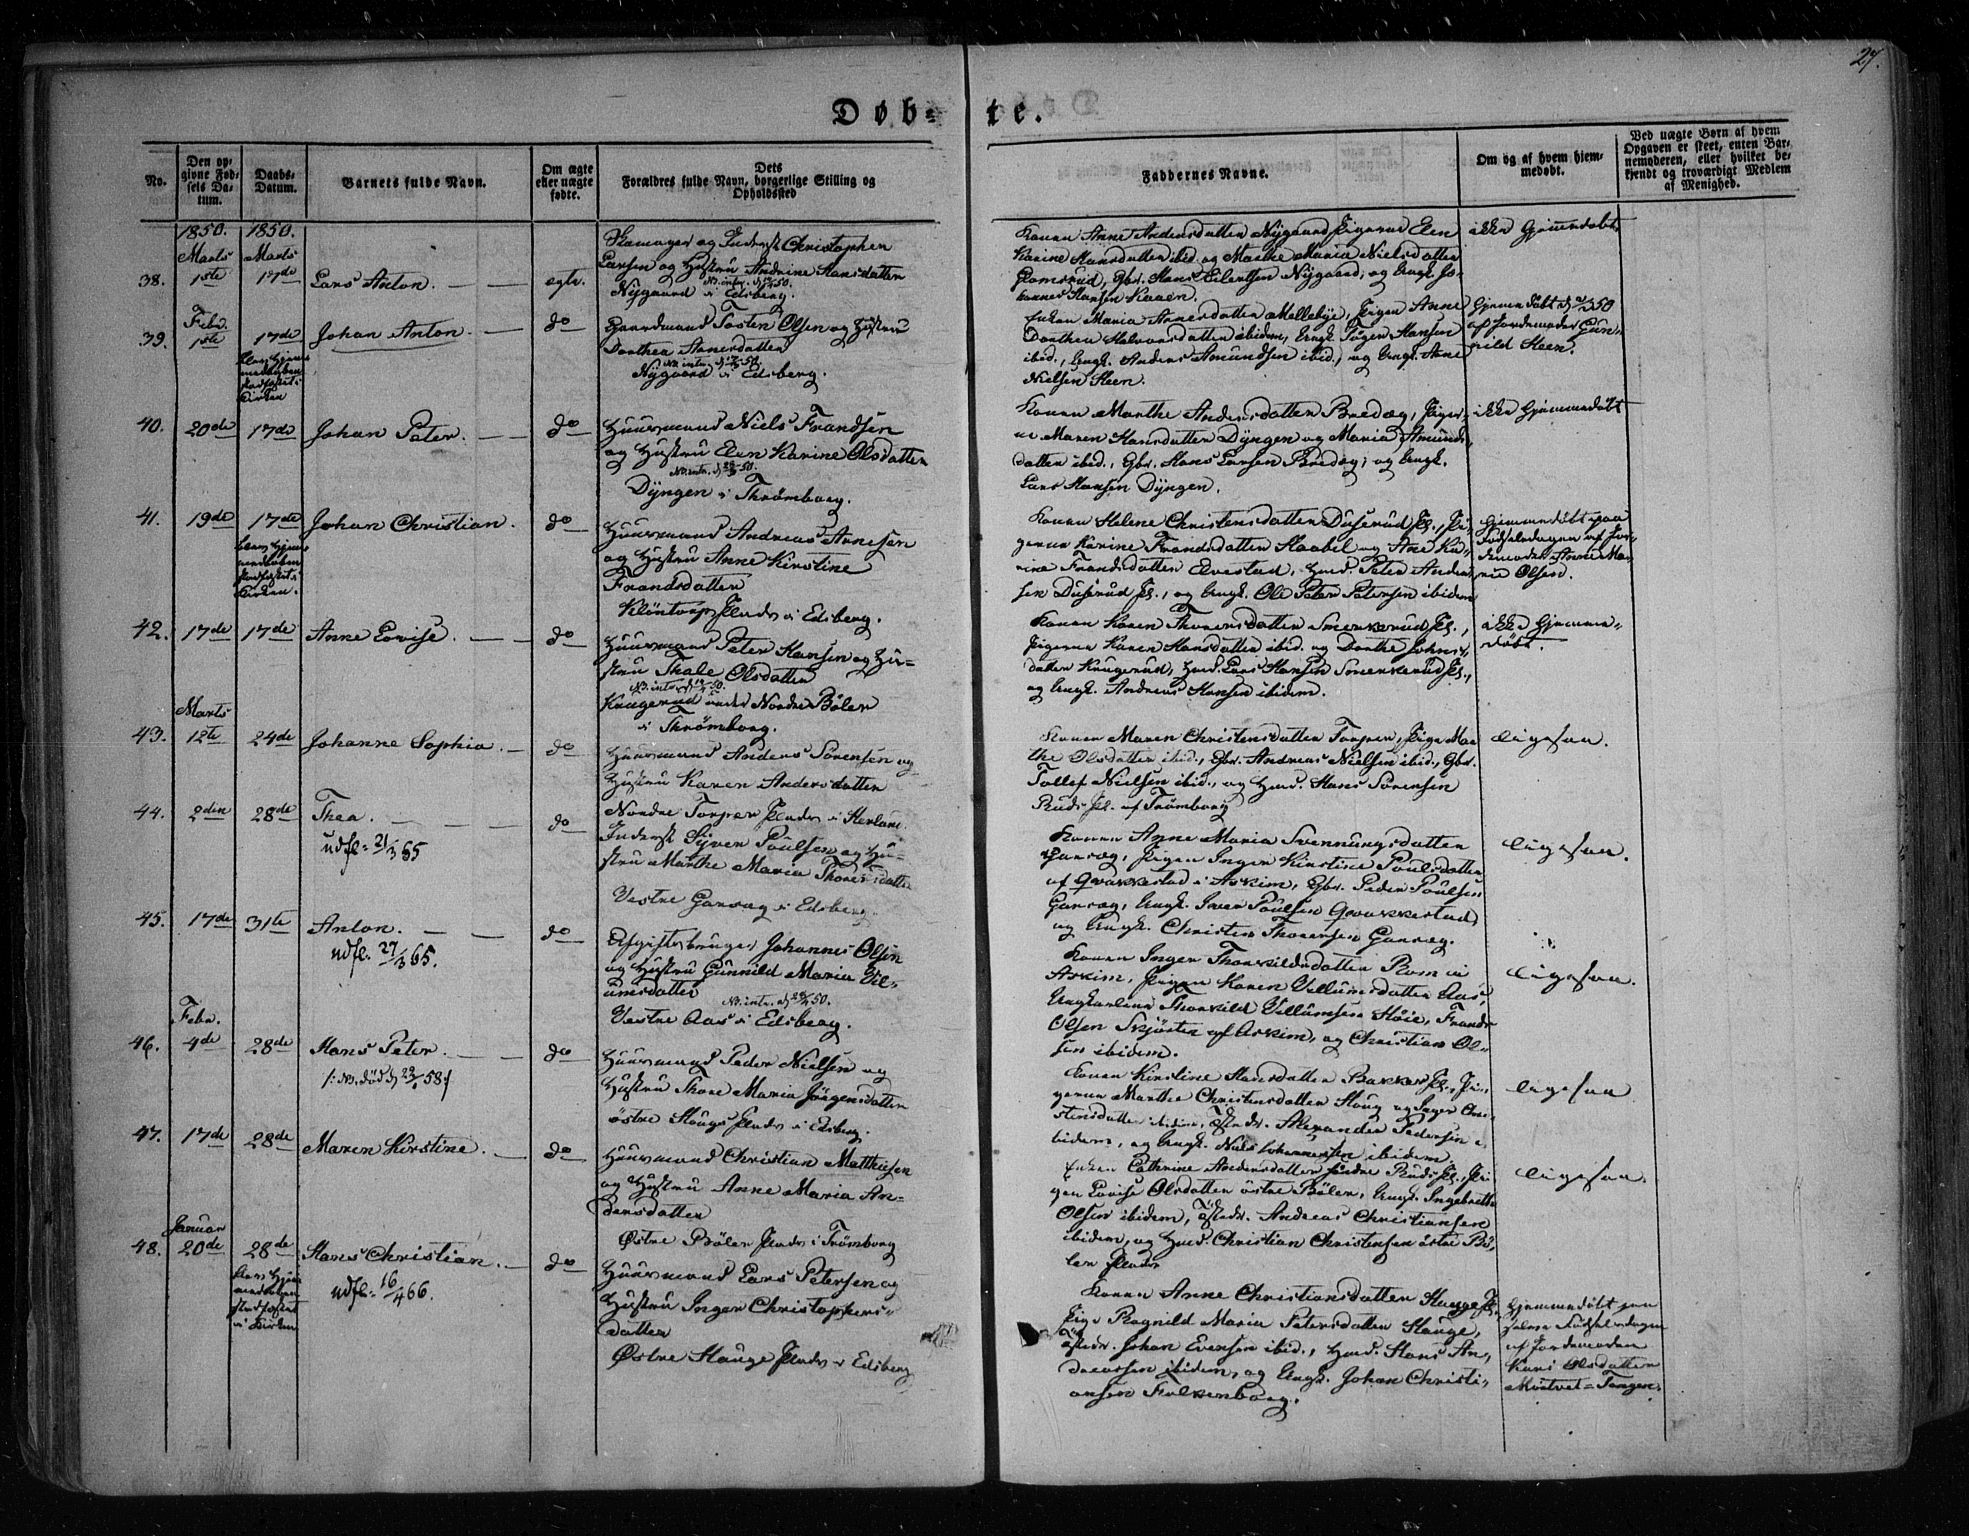 27.
Døb-
te.
No.
Den op-
givne Fød-
sels Da-
tum.
Daabs-
Datum.
Barnets fulde Navn.
Om ægte
eller uægte
fødte.
Dets
Forældres fulde Navn, borgerlige Stilling og
Opholdssted
Faddernes Navne.
Om og af hvem hjem-
medøbt.
Ved uægte Børn af hvem
Opgaven er skeet, enten Bar-
nemoderen, eller hvilket be-
kjendt og troværdigt Medlem
af Menighed.
1850. 1850.
Marts Marts
38. 1ste 17de Lars Anton. ægte.
Skomager og Inderst Christopher
Larsen og Hustru Andrine Hansdatter
Nygaard i Edsberg.
Konen Anne Andersdatter Nygaard, Pigerne Elen
Karine Hansdatter ibid. og Marthe Maria Nielsdatter
Glomsrud, Gbr. Hans Eilertsen Nygaard, og Ungk. Jo-
hannes Hansen
ikke hjemmedøbt
Febr.
39. 1ste 17de Johan Anton. do
blev hjem-
medøben
stadfæstet i
Kirken
Gaardmand Tosten Olsen og Hustru
Dorthea Arnesdatter
Nygaard i Edsberg.
Enken Maria Arnesdatter Mellebye, Pigen Anne
Dorthea Halvorsdatter ibidem, Ungk. Jørgen Hansen
ibid., Ungk. Anders Amundsen ibid., og Ungk. Arne
Nielsen Steen.
Hjemmedøbt
af Jordemoder Gun-
nild Steen.
40. 20de 17de Johan Peter. do
Huusmand Niels Frandsen
og Hustru Elen Karine Olsdatter
Dyngen i Thrømborg.
Konen Marthe Andersdatter Bredeg, Piger-
ne Maren Hansdatter Dyngen og Maria Amunds-
datter ibid., Gbr. Hans Larsen Bredeg, og Ungk.
Lars Hansen Dyngen.
ikke hjemmedøbt
41. 19de 17de Johan Christian. do
blev hjem-
medøben
stadfæstet i
Kirken.
Huusmand Andreas Arnesen
og Hustru Anne Kirstine
Frandsdatter
Kløntorp Plads i Edsberg.
Konen Helene Christensdatter Duserud Pl., Pi-
gerne Karine Frandsdatter Skaabel og Ane Ka-
rine Frandsdatter Elvestad, Hmd. Peter Ander-
sen Duserud Pl., og Ungk. Ole Peter Petersen ibidem
hjemmedøbt paa
Fødselsdagen af Jor-
demoder Anne Ma-
rie Olsen.
42. 17de 17de Anne Lovise. do
Huusmand Peter Hansen og Hu-
stru Thale Olsdatter
Krugerud under Nordre Bøler
i Thrømborg.
Konen Karen Thoresdatter Smerkerud Pl.,
Pigerne Karen Hansdatter ibid. og Dorthe Johns-
datter Krugerud, Hmd. Lars Hansen Smerkerud Pl.,
og Ungk. Andreas Hansen ibidem.
ikke hjemme-
døbt.
Marts
43. 12te 24de Johanne Sophia. do
Huusmand Anders Sørensen og
Hustru Karen Andersdatter
Nordre Torper Plads i Herland.
Konen Maren Christensdatter Torper, Pige Mar-
the Olsdatter ibid., Gbr. Andreas Nielsen ibid., Gbr.
Tollef Nielsen ibid., og Hmd. Hans Sørensen
Ruds Pl. af Trømborg
ligesaa.
44. 2den 28de Thea.
udfl. 21/3 65
do
Inderst Syver Poulsen og Hu-
stru Marthe Maria Thoresdatter
Vestre Garseg i Edsberg.
Konen Anne Maria Svennungsdatter
Garseg, Pigen Inger Kirstine Poulsdatter
af Qvakkestad i Askim, Gbr. Peder Poulsen
Garseg, Ungk. Iver Poulsen Qvakkestad
og Ungk. Christen Thoresen Garseg.
ligesaa.
45. 17de 31te Anton.
udfl. 27/3 65.
do
Afgiftsbruger Johannes Olsen
og Hustru Gunnild Maria Vil-
lumsdatter
Vestre Aas i Edsberg.
Konen Inger Thorkildsdatter Rom i
Askim, Pigen Karen Villumsdatter Aas,
Ungkarlene Thorkild Villumsen Høie, Frands
Olsen Skjørten af Askim, og Christian Ol-
sen ibidem.
ligesaa.
Febr.
46. 4de 28de Hans Peter.
do
Huusmand Peder Nielsen og
Hustru Thore Maria Jørgensdatter
østre Haugs Plads i Edsberg.
Konen Kirstine Hansdatter Bakker Pl., Pi-
gerne Marthe Christensdatter Haug og Inger Chri-
stensdatter ibidem, Alexander Pedersen
ibidem, og Ungk. Niels Johannessen ibidem.
ligesaa
47. 17de 28de Maren Kirstine. do
Huusmand Christian Matthisen
og Hustru Anne Maria An-
dersdatter
Østre Bøler Plads i Trømborg
Enken Cathrine Andersdatter søndre Ruds Pl., Pi-
gen Lovise Olsdatter østre Bøler, Ungk. Ingebrett
Olsen ibidem, Andreas Christiansen
ibidem, og Hmd. Christian Christensen østre Bø-
ler Plads
ligesaa.
Januar
48. 20de 28de Hans Christian.
udfl. 16/4 66.
do
blev hjem-
medøben
stadfæstet
i Kirken
Huusmand Lars Petersen og
Hustru Inger Christophers-
datter
Østre Hauge Plads i Edsberg
Konen Anne Christiansdatter Hauge Pl.,
Pige Ragnild Maria Petersdatter Hauge,
Johan Evensen ibid., Hmd. Hans An-
dreassen ibidem, og Ungk. Johan Christi-
ansen Falkenborg.
hjemmedøbt paa
selve Fødselsdagen
af Jordemoder
Kari Olsdatter
Møstvet-Tangen.